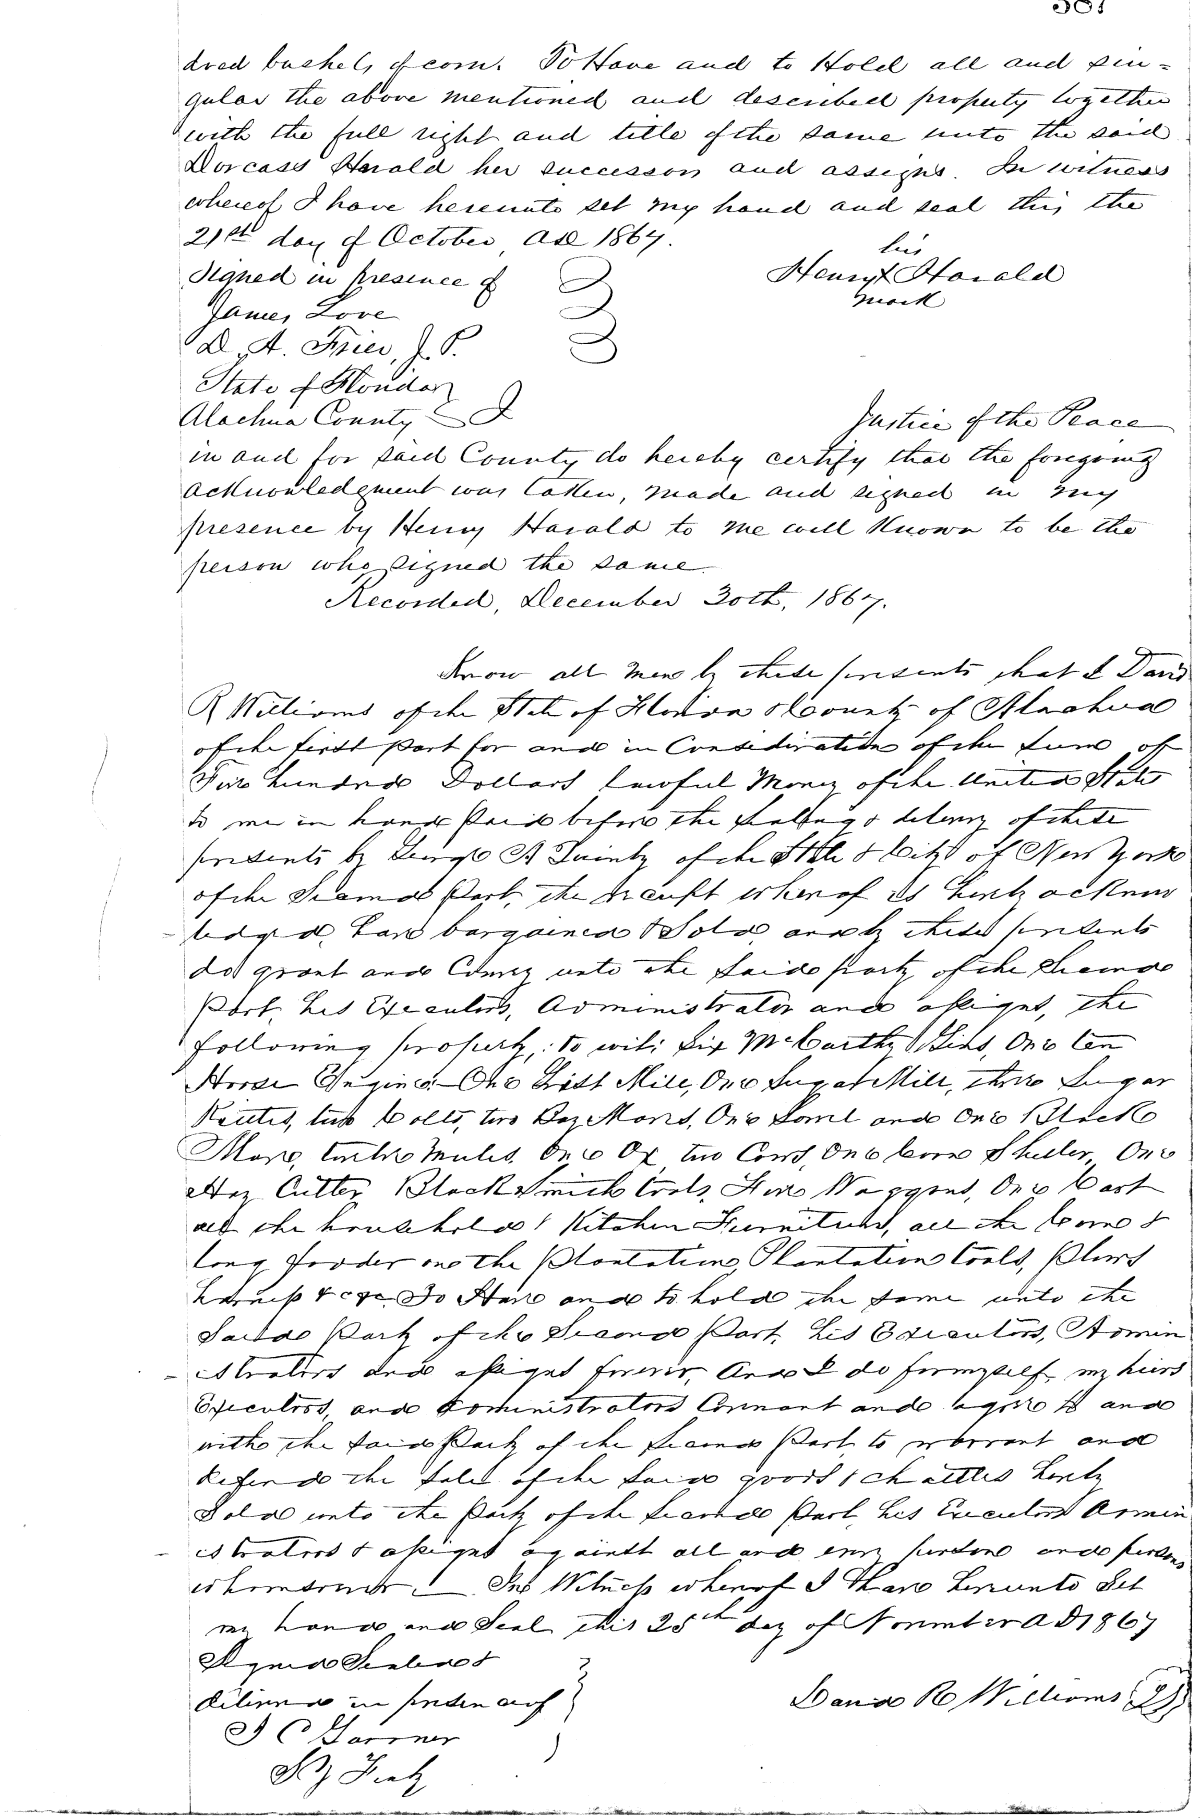 dred bushels of corn. To Have and to Hold all and sin=
gular the above mentioned and described property together
with the full right and title of the same unto the said
Dorcass Harald her successors and assigns. In witness
whereof I have hereunto set my hand and seal this the
21st day of October AD 1867.
his
Signed in presence of
Henry X Harald
mark
James Love
D. A. Frier, J. P.
State of Florida
Alachua County
Justice of the Peace
in and for said County do hereby certify that the foregoing
acknowledgment was taken, made and signed in my
presence by Henry Harald to me well known to be the
person who signed the same
Recorded, December 30th, 1867.
Know all men by these presents that I David
R Williams of the State of Florida & County of Alachua
of the first part for and in Consideration of the sum of
Five hundred Dollars lawful Money of the United States
to me in hand paid before the Sealing & delivery of these
presents by George A of the State & City of New York
of the Second Part, the receipt whereof is hereby acknow
ledged, have bargained & Sold, and by these presents
do grant and Convey unto the said party of the Second
Part, his Executors, Administrator and assigns, the
following property, : to wit; Six McCarthy Gins, One ten
Horse Engine One Grist Mill, One Sugar Mill, three Sugar
Kettles, two Colts, two Bay Mares, One Sorrel and One Black
Mare, twelve Mules, One Ox, two Cows, One Corn Sheller, One
Hay Cutter, Blacksmith tools, Five Waggons, One Cart
all the household & Kitchen Furniture, all the Corn &
long fodder on the Plantation, Plantation tools, Plows
harness &c &c, To Have and to hold the same unto the
Said Party of the Second Part, his Executors, Admin
istrators and assigns forever, And I do for myself, my heirs
Executors, and administrators Covenant and agree to and
with the said Party of the Second Part to warrant and
defend the Sale of the Said goods & chattles hereby
Sold unto the Party of the Second Part, his Executors Admin
istrators & assigns against all and every person and persons
whomsoever. In Witness whereof I Have hereunto Set
my hand and Seal this 25th day of November AD 1867
Signed Sealed &
delivered in presence of
David R Williams